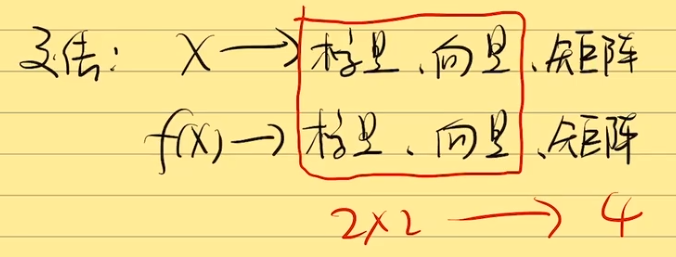 求法: X → 标量、向量、矩阵
f(X) → 标量、向量、矩阵
2×2 → 4